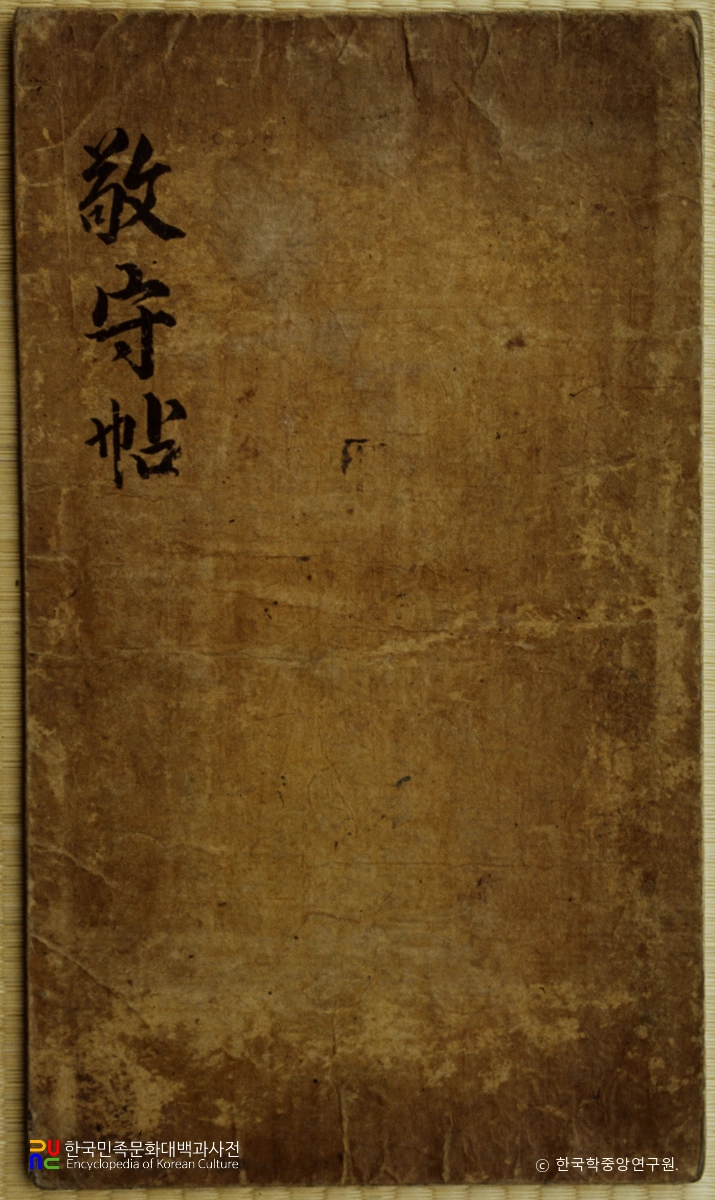 敬守帖
한국민족문화대백과사전
Encyclopedia of Korean Culture
© 한국학중앙연구원.